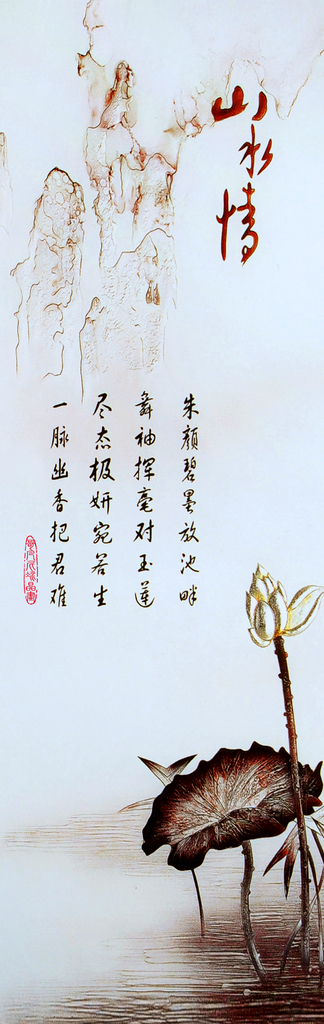 山水情
朱颜碧墨放池畔
舞袖挥毫对玉莲
尽态极妍宛若生
一脉幽香把君难